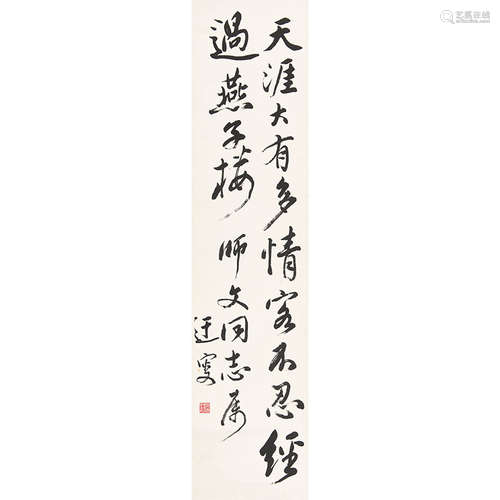 天涯大有多情客不忍經
過燕子樓 師文同志属
迂叟